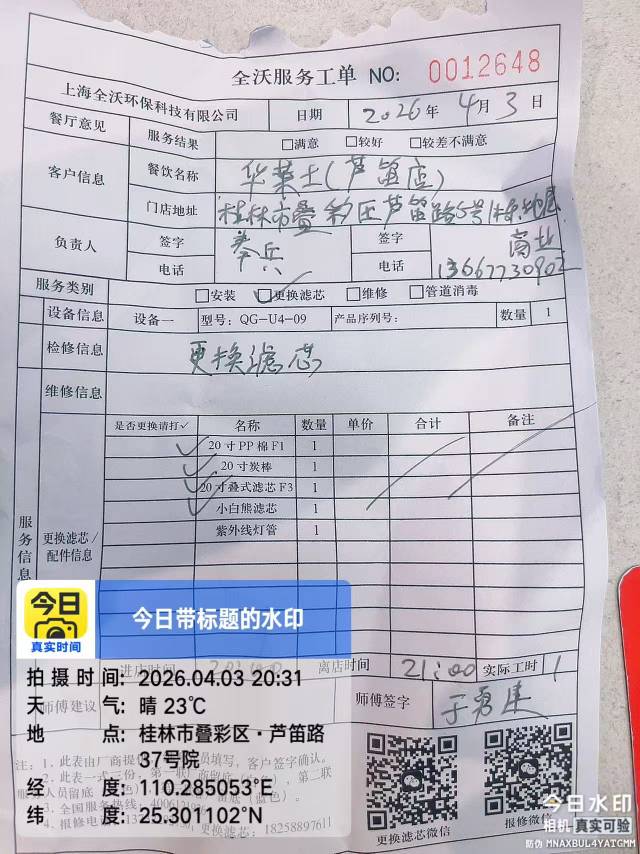 全沃服务工单 NO: 0012648
上海全沃环保科技有限公司 日期 2026年 4月 3日
餐厅意见 服务结果 □满意 □较好 □较差不满意
客户信息 餐饮名称 华莱士(芦笛店)
门店地址 桂林市叠彩区芦笛路5号1栋
负责人 签字 秦兵 签字
电话 电话 13667730902
服务类别 □安装 □更换滤芯 □维修 □管道消毒
设备信息 设备一 型号: QG-U4-09 产品序列号: 数量 1
检修信息 更换滤芯
维修信息
是否更换请打✓ 名称 数量 单价 合计 备注
✓ 20寸PP棉F1 1
✓ 20寸炭棒 1
✓ 20寸叠式滤芯F3 1
✓ 小白熊滤芯 1
紫外线灯管 1
服务信息 更换滤芯/配件信息
进店时间 离店时间 21:00 实际工时 1
师傅建议 师傅签字
注: 1、此表由厂商提 员填写,客户签字确认。
2、此表一式三份: 第一联 第二联
3、全国服务热线: 400612
4、报修电话: 更换滤芯: 18258897611
更换滤芯微信 报修微信
今日
真实时间
今日带标题的水印
拍摄时间: 2026.04.03 20:31
天气: 晴 23℃
地点: 桂林市叠彩区·芦笛路
37号院
经度: 110.285053°E
纬度: 25.301102°N
今日水印
相机 真实可验
防伪 MNAXBUL4YATGMM